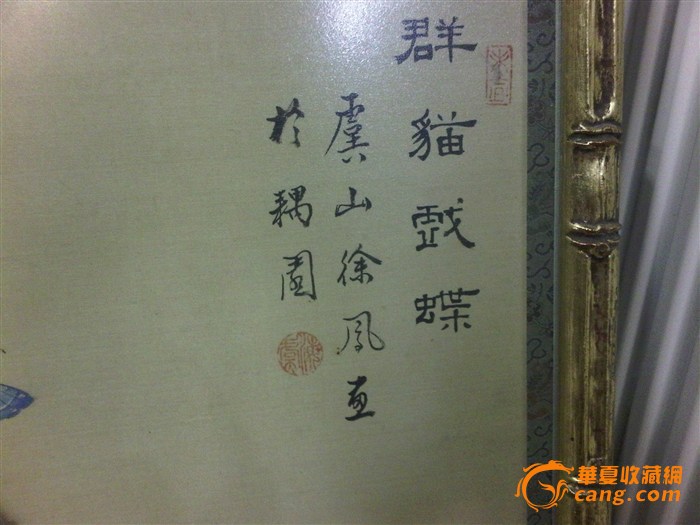 群貓戲蝶
虞山徐鳳画
於耦園
華夏收藏網
cang.com